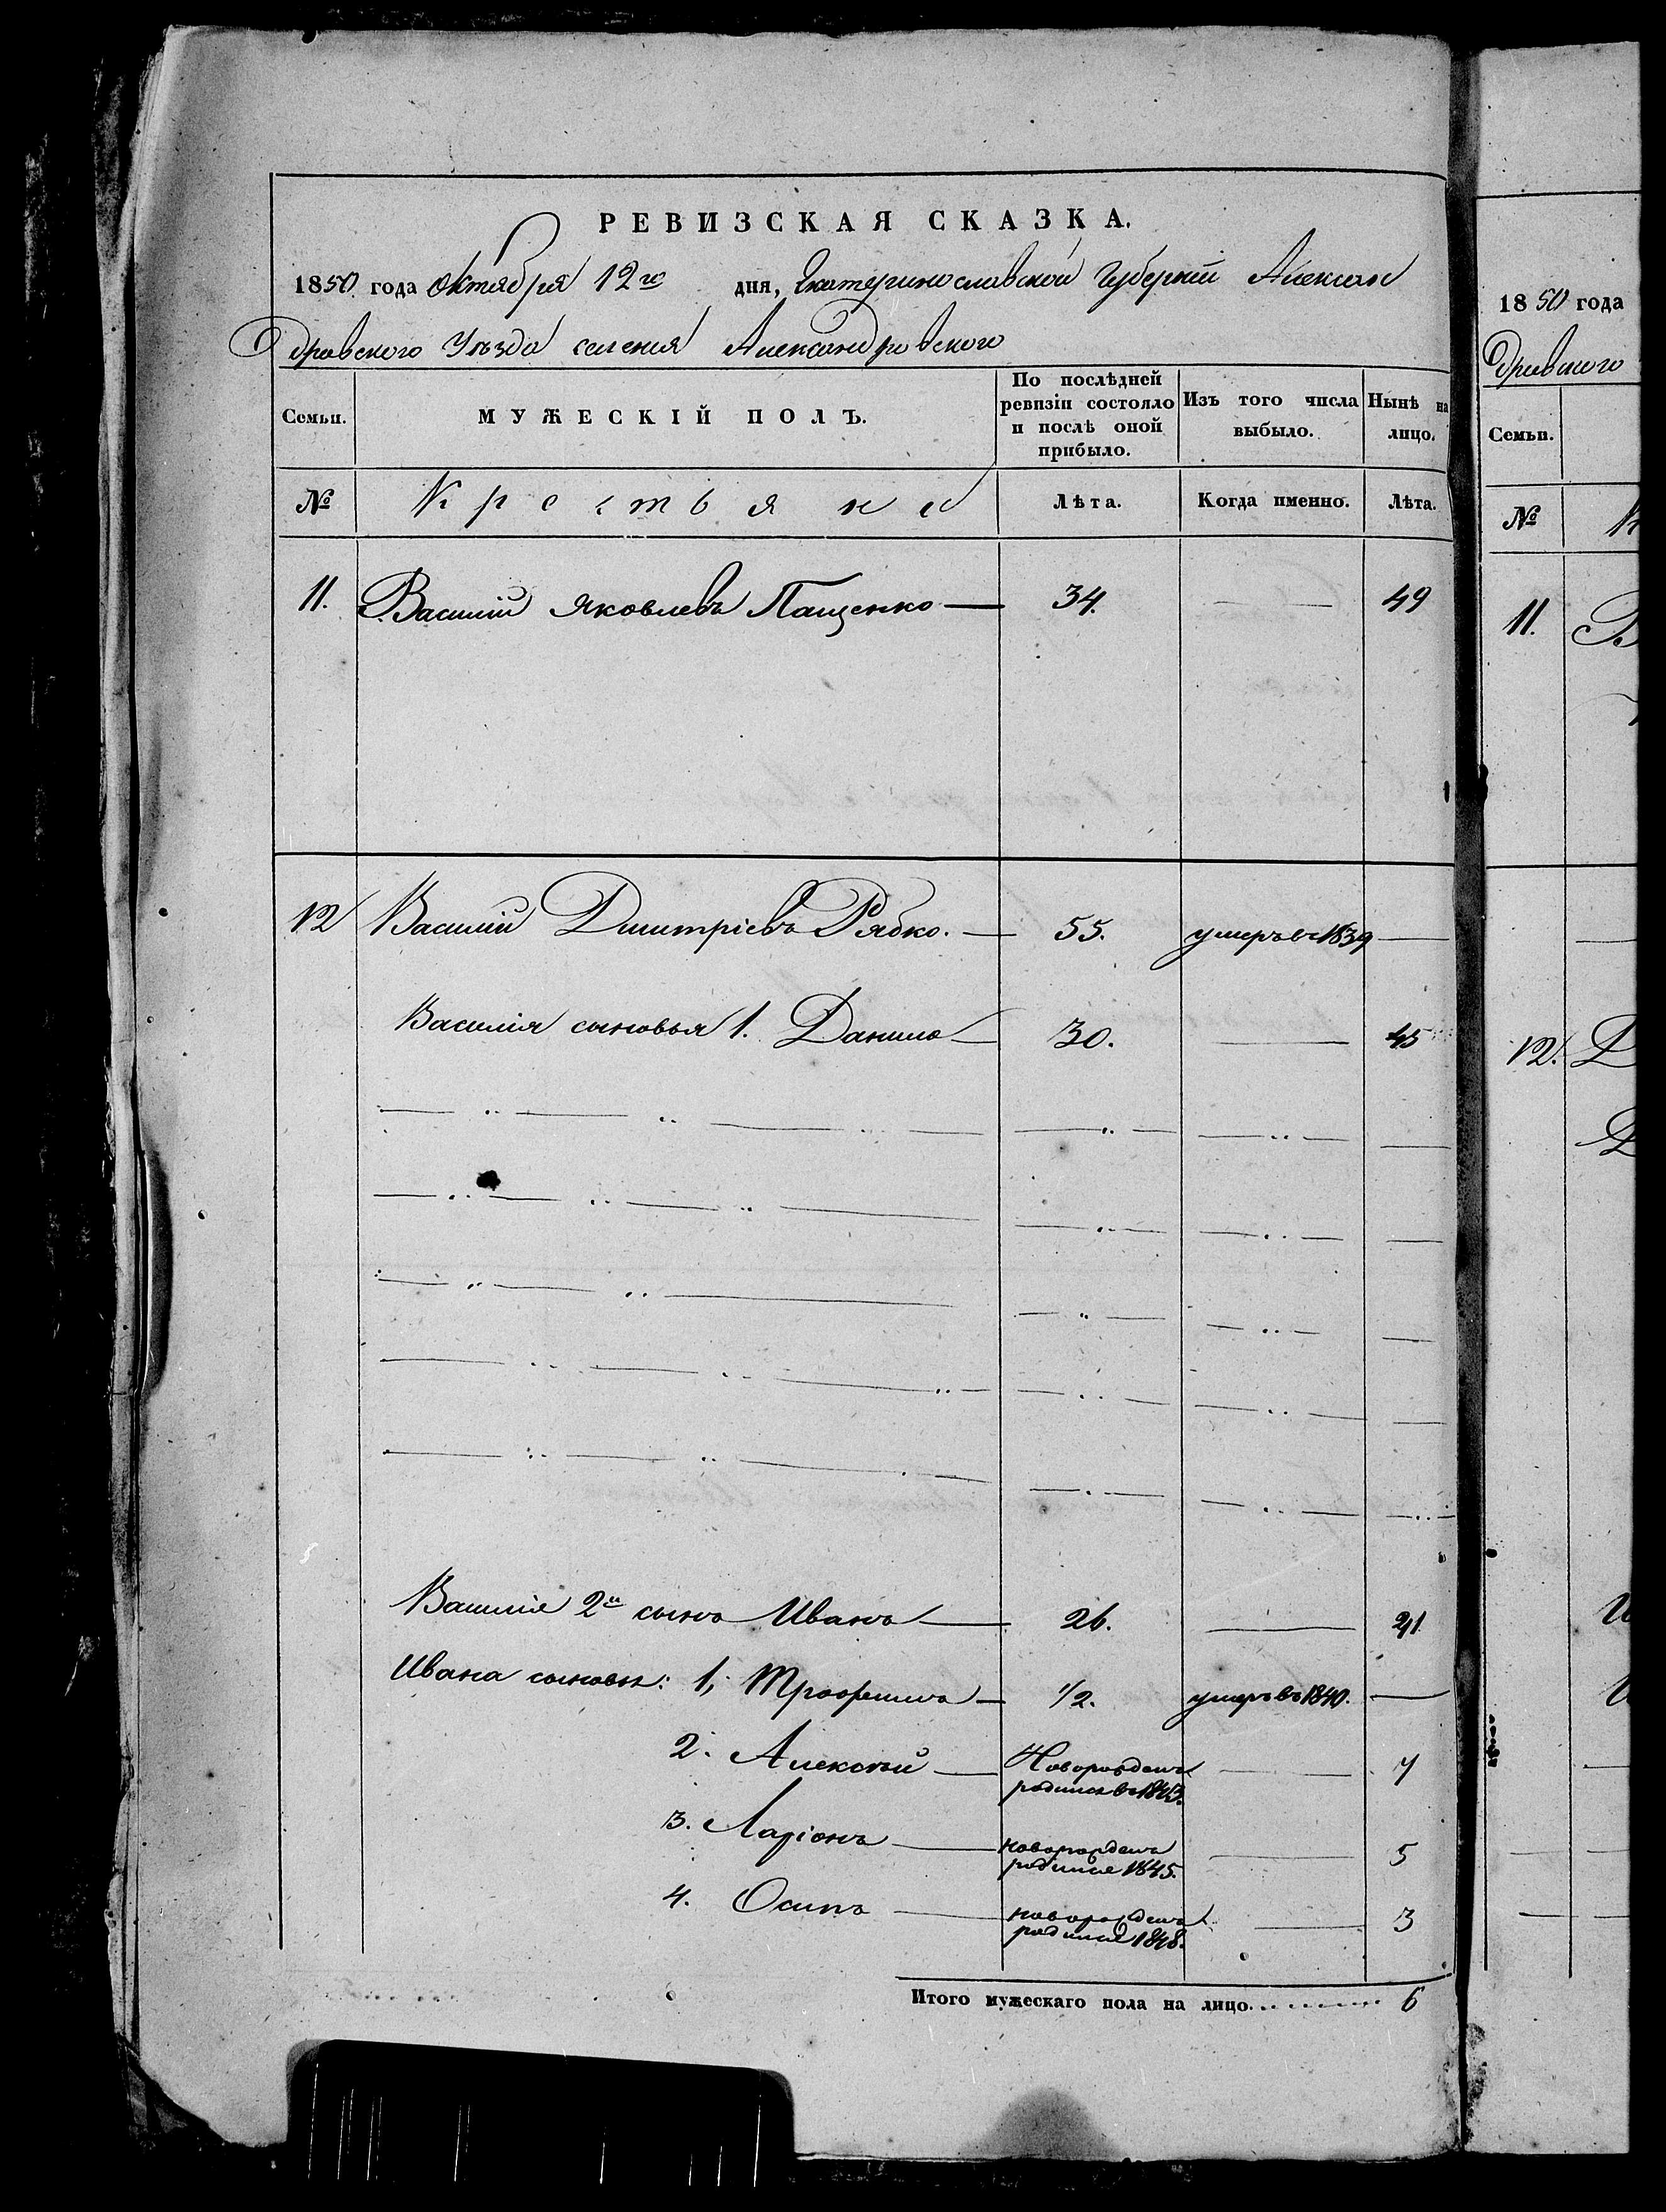 РЕВИЗСКАЯ СКАЗКА.
1850 года Октября 12го дня, Екатеринославской Губерніи Алексан
дровского Уѣзда селения Александровского
Семьи. МУЖЕСКІЙ ПОЛЪ. По послѣдней ревизіи состояло и послѣ оной прибыло. Изъ того числа выбыло. Нынѣ на лицо.
№ Крестьяне Лѣта. Когда именно. Лѣта.
11. Василий Яковлевъ Пащенко — 34. — 49
12 Василий Дмитріевъ Рябко. — 55. умеръ въ 1839 —
Василія сыновья 1. Данило — 30. — 45
Василія 2й сынъ Иванъ — 26. — 41
Ивана сыновья: 1, Трофимъ — 1/2. умеръ въ 1840. —
2. Алексѣй — Новорожденъ — 7
родился въ 1843.
3. Ларіонъ — новорожденъ — 5
родился 1845.
4. Осипъ — новорожденъ — 3
родился 1848.
Итого мужескаго пола на лицо 6
1850 года
дровского
Семьи.
№
11.
12.